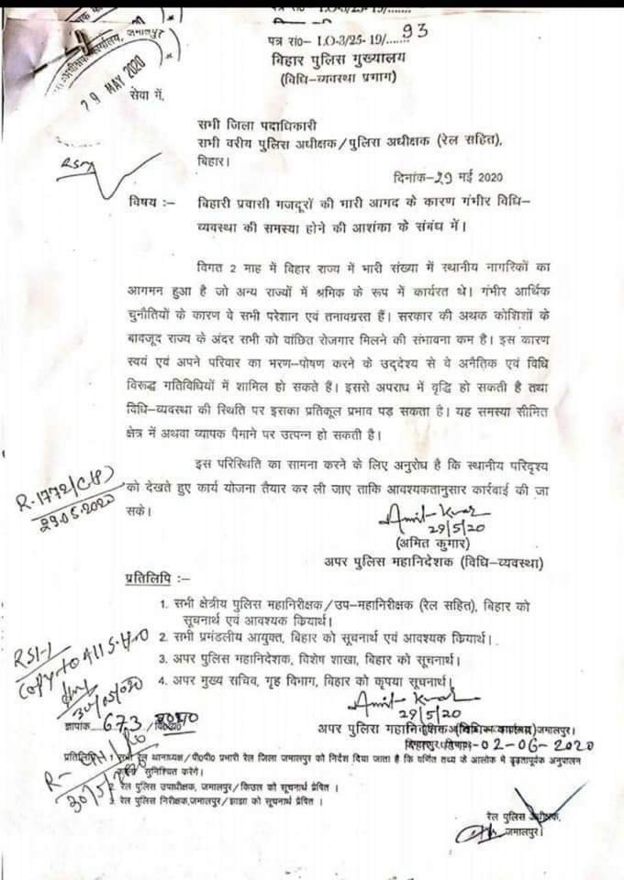 पत्र सं०– L.O-3/25-19/.......93
बिहार पुलिस मुख्यालय
(विधि–व्यवस्था प्रभाग)
जमालपुर
29 MAY 2020
सेवा में,
सभी जिला पदाधिकारी
सभी वरीय पुलिस अधीक्षक/पुलिस अधीक्षक (रेल सहित),
बिहार।
दिनांक–29 मई 2020
विषय :– बिहारी प्रवासी मजदूरों की भारी आगद के कारण गंभीर विधि–
व्यवस्था की समस्या होने की आशंका के संबंध में।
विगत 2 माह में बिहार राज्य में भारी संख्या में स्थानीय नागरिकों का
आगमन हुआ है जो अन्य राज्यों में श्रमिक के रूप में कार्यरत थे। गंभीर आर्थिक
चुनौतियों के कारण वे सभी परेशान एवं तनावग्रस्त हैं। सरकार की अथक कोशिशों के
बावजूद राज्य के अंदर सभी को वांछित रोजगार मिलने की संभावना कम है। इस कारण
स्वयं एवं अपने परिवार का भरण–पोषण करने के उद्देश्य से वे अनैतिक एवं विधि
विरूद्ध गतिविधियों में शामिल हो सकते हैं। इससे अपराध में वृद्धि हो सकती है तथा
विधि–व्यवस्था की स्थिति पर इसका प्रतिकूल प्रभाव पड़ सकता है। यह समस्या सीमित
क्षेत्र में अथवा व्यापक पैमाने पर उत्पन्न हो सकती है।
इस परिस्थिति का सामना करने के लिए अनुरोध है कि स्थानीय परिदृश्य
को देखते हुए कार्य योजना तैयार कर ली जाए ताकि आवश्यकतानुसार कार्रवाई की जा
सके।
R-1772/(C.P)
29.05.2020
Amit Kumar
29/5/20
(अमित कुमार)
अपर पुलिस महानिदेशक (विधि–व्यवस्था)
प्रतिलिपि :–
1. सभी क्षेत्रीय पुलिस महानिरीक्षक/उप–महानिरीक्षक (रेल सहित), बिहार को
सूचनार्थ एवं आवश्यक क्रियार्थ।
2. सभी प्रमंडलीय आयुक्त, बिहार को सूचनार्थ एवं आवश्यक क्रियार्थ।
3. अपर पुलिस महानिदेशक, विशेष शाखा, बिहार को सूचनार्थ।
4. अपर मुख्य सचिव, गृह विभाग, बिहार को कृपया सूचनार्थ।
Copy to All S.H.O
30/05/020
Amit Kumar
29/5/20
ज्ञापांक 673
अपर पुलिस महानिदेशक
जमालपुर।
02-06-2020
प्रतिलिपि 1. सभी रेल थानाध्यक्ष/पी०पी० प्रभारी रेल जिला जमालपुर को निर्देश दिया जाता है कि वर्णित तथ्य के आलोक में दृढ़तापूर्वक अनुपालन
सुनिश्चित करेंगे।
2. रेल पुलिस उपाधीक्षक, जमालपुर/किउल को सूचनार्थ प्रेषित ।
3. रेल पुलिस निरीक्षक,जमालपुर/झाझा को सूचनार्थ प्रेषित ।
30/5/20
रेल पुलिस अधीक्षक,
जमालपुर।